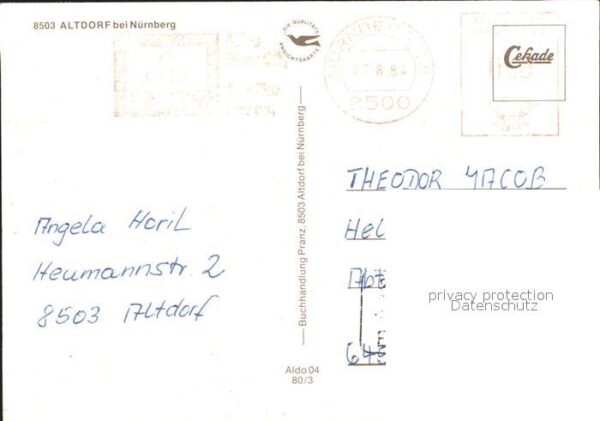 8503 ALTDORF bei Nürnberg
DIE QUALITÄTS
ANSICHTSKARTE
8.84
8500
Cekade
Buchhandlung Pranz. 8503 Altdorf bei Nürnberg
THEODOR YACOB
Hel
Angela Horil
Heumannstr. 2
8503 Altdorf
privacy protection
Datenschutz
Aldo 04
80/3